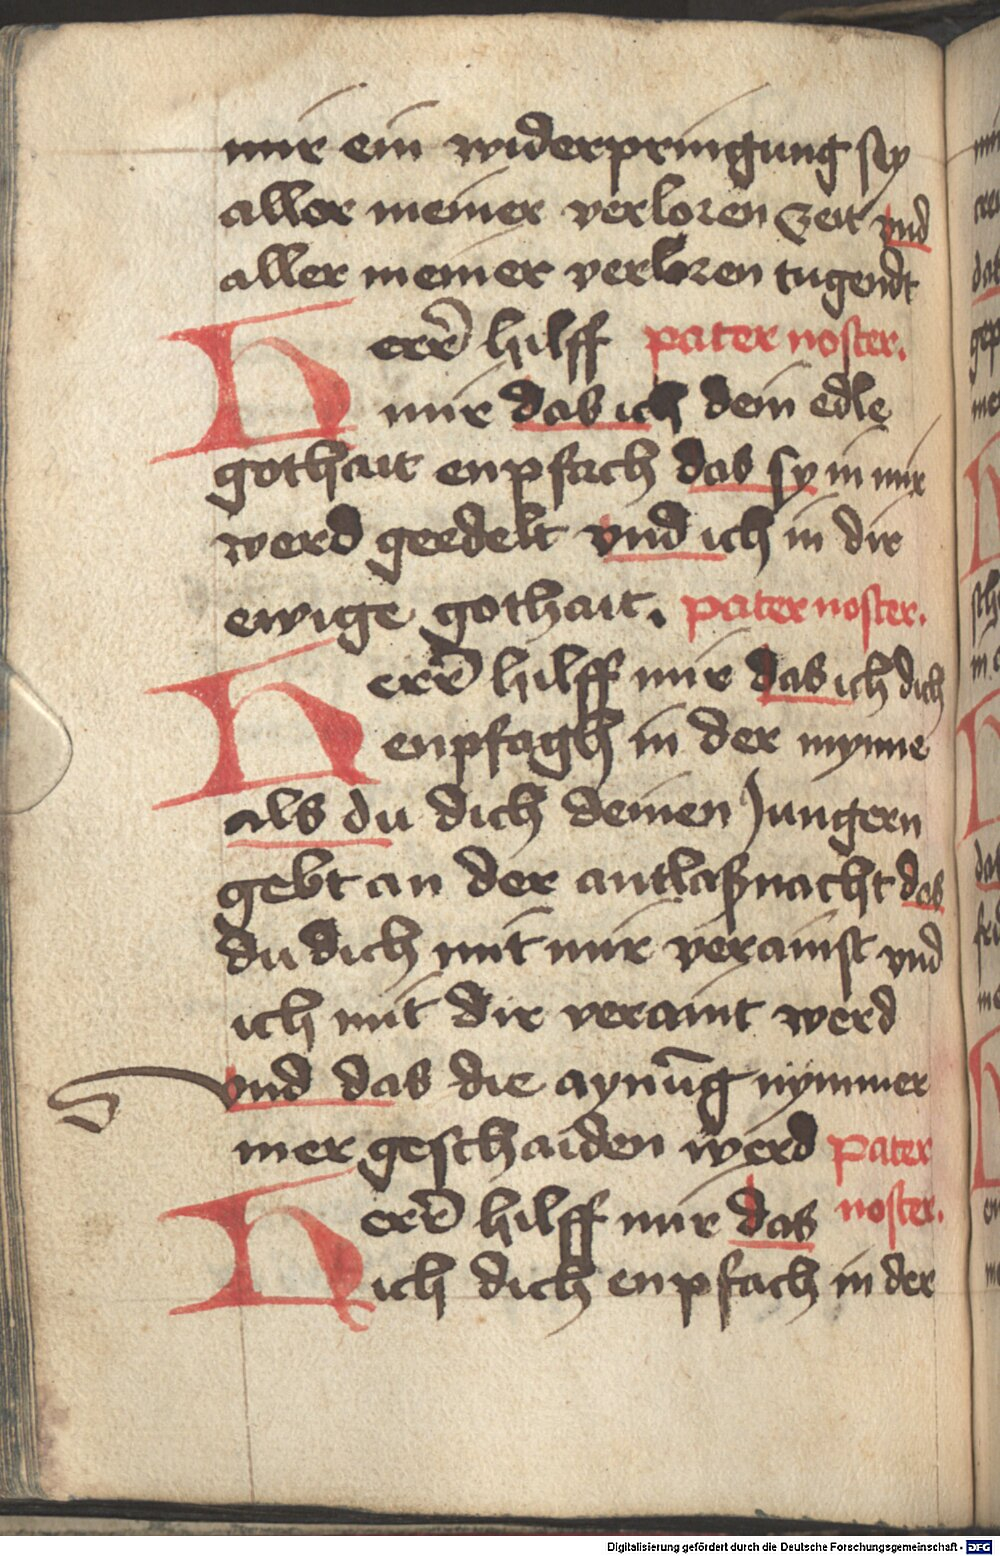 mir ein widerpringung sey
aller meiner verloren zeit vnd
aller meiner verloren tugendt
Herr̄ hilff pater noster.
mir das ich dein edle
gothait enpfach das sy in mir
werd geedelt vnd ich in dir
ewige gothait. pater noster.
Herr̄ hilff mir das ich dich
enpfagh in der mynne
als du dich deinen Jungern
gebt an der antlaßnacht das
du dich mit mir verainst vnd
ich mit dir veraint werd
vnd das die aynūg nymmer
mer geschaiden werd pater
Herr̄ hilff mir das noster.
ich dich enpfach in der
Digitalisierung gefördert durch die Deutsche Forschungsgemeinschaft - DFG